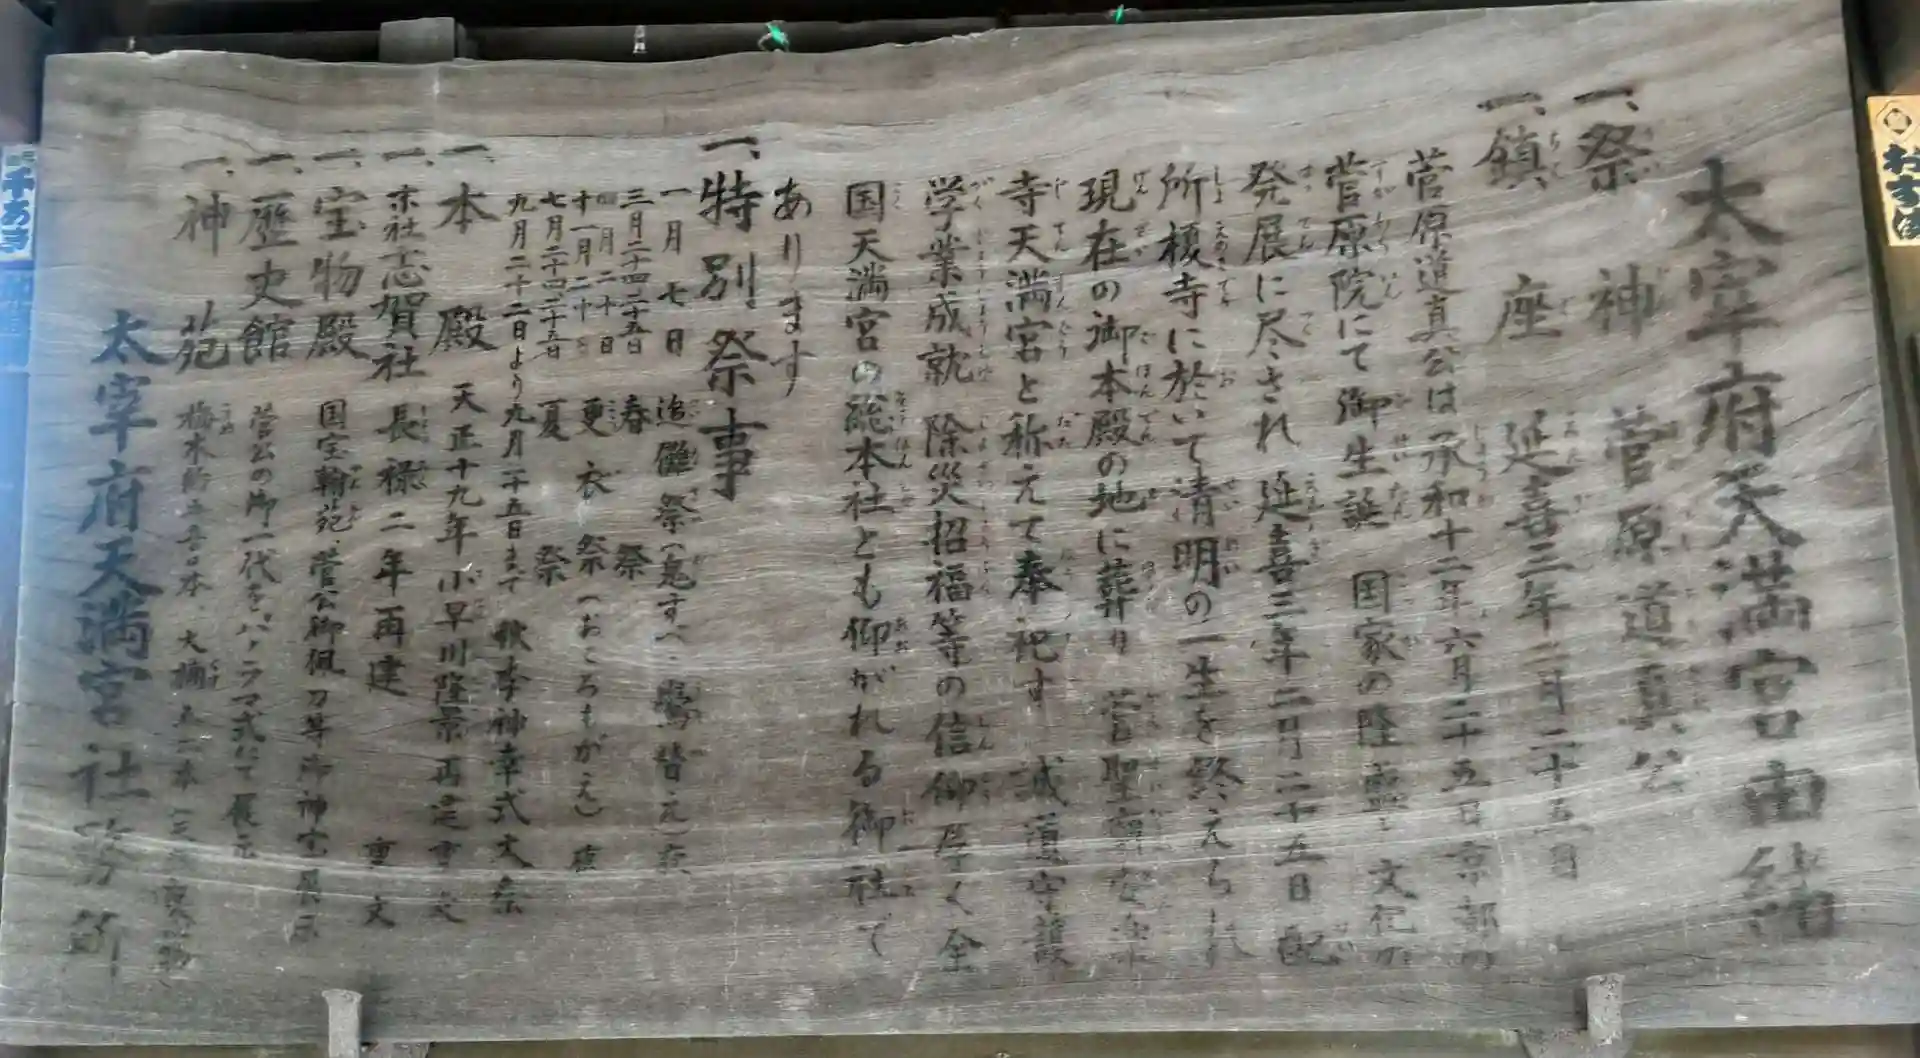 太宰府天満宮由緒
一、祭神 菅原道真公
一、鎮座 延喜三年二月二十五日
菅原道真公は承和十二年六月二十五日京都の
菅原院にて御生誕 国家の隆霊と文化の
発展に尽され 延喜三年二月二十五日 配
所榎寺に於いて清明の一生を終えられ
現在の御本殿の地に葬り 菅聖廟安楽
寺天満宮と称えて奉祀す 誠意守護
学業成就 除災招福等の信仰厚く全
国天満宮の総本社とも仰がれる御社で
あります
一、特別祭事
一月 七日 追儺祭(鬼すべ 鷽替え)
三月二十四二十五日 春祭
四月二十日
十一月二十日 更衣祭(おころもがえ)
七月二十四二十五日 夏祭
九月二十二日より九月二十五日まで 秋季神幸式大祭
一、本殿 天正十九年小早川隆景再建 重文
一、末社志賀社 長禄二年再建 重文
一、宝物殿 国宝翰苑 菅公御佩刀等御神宝展示
一、歴史館 菅公の御一代をパノラマ式にて展示
一、神苑 梅木 大楠
太宰府天満宮社務所